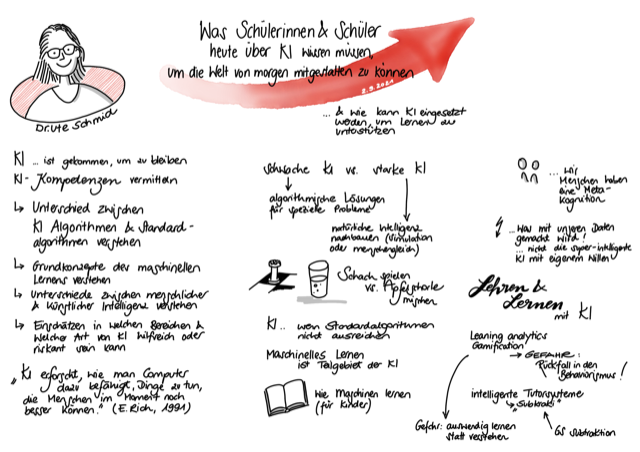 Was Schülerinnen & Schüler
heute über KI wissen müssen,
um die Welt von morgen mitgestalten zu können
Dr. Ute Schmid
... & wie kann KI eingesetzt
werden, um Lernen zu
unterstützen
KI ... ist gekommen, um zu bleiben
KI-Kompetenzen vermitteln
↳ Unterschied zwischen
KI Algorithmen & Standard-
algorithmen verstehen
↳ Grundkonzepte des maschinellen
Lernens verstehen
↳ Unterschiede zwischen menschlicher
& künstlicher Intelligenz verstehen
↳ Einschätzen in welchen Bereichen &
welcher Art von KI hilfreich oder
riskant sein kann
„KI erforscht, wie man Computer
dazu befähigt, Dinge zu tun,
die Menschen im Moment noch
besser können." (E. Rich, 1991)
schwache KI vs. starke KI
algorithmische Lösungen
für spezielle Probleme
natürliche Intelligenz
nachbauen (Simulation
oder menschengleich)
Schach spielen
vs. Apfelschorle
mischen
KI... wenn Standardalgorithmen
nicht ausreichen
Maschinelles Lernen
ist Teilgebiet der KI
Wie Maschinen lernen
(für Kinder)
... wir
Menschen haben
eine Meta-
Kognition
... was mit unseren Daten
gemacht wird!
... nicht die super-intelligente
KI mit eigenem Willen
Lehren &
Lernen
mit KI
Leaning analytics
Gamification
→ GEFAHR:
Rückfall in den
Behaviorismus!
intelligente Tutorsysteme
↳ "Subkraki"
GS Subtraktion
Gefahr: auswendig lernen
statt verstehen